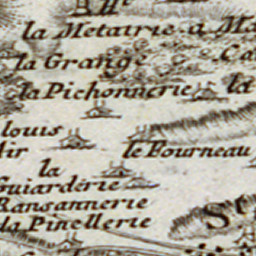 la Metairie a Ma
la Grange Ca
la Pichonnerie la
louis
Air le Fourneau
la
Guiarderie
Ransannerie
la Pinellerie
St